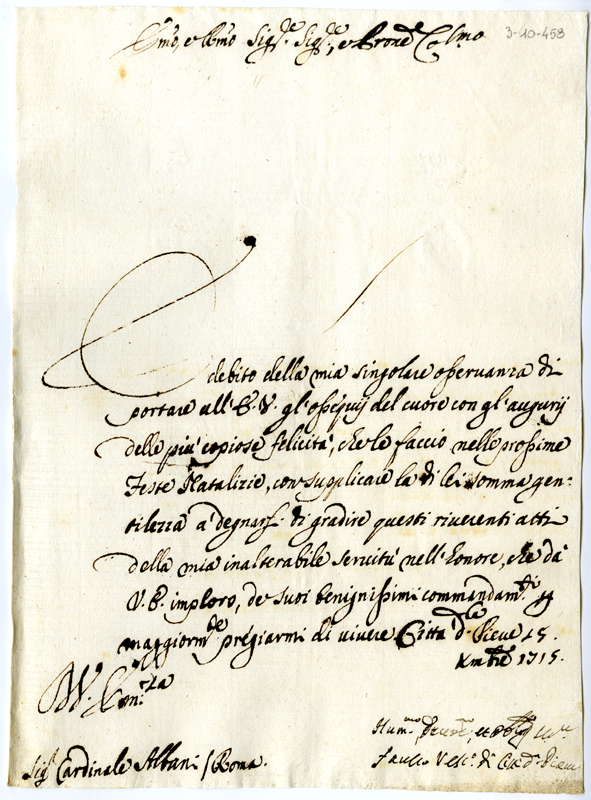 Em̃o, e Rm̃o Sig.re Sig.re, e Prone Col.mo
3-10-458
È debito della mia singolare osservanza di
portare all'E. V. gl'ossequij del cuore con gl'augurij
delle più copiose felicità, che le faccio nelle prossime
Feste Natalizie, con supplicare la di lei somma gen:
tilezza a degnarsi di gradire questi riverenti atti
della mia inalterabile servitù nell'honore, che da
V. E. imploro, de suoi benignissimi commandam.ti p
maggiorm.te pregiarmi di vivere Città d.la Pieve 15.
Xmbre 1715.
Sig.r Cardinale Albani / Roma.
Hum.mo
Fausto Vesc.o di Città d. Pieve